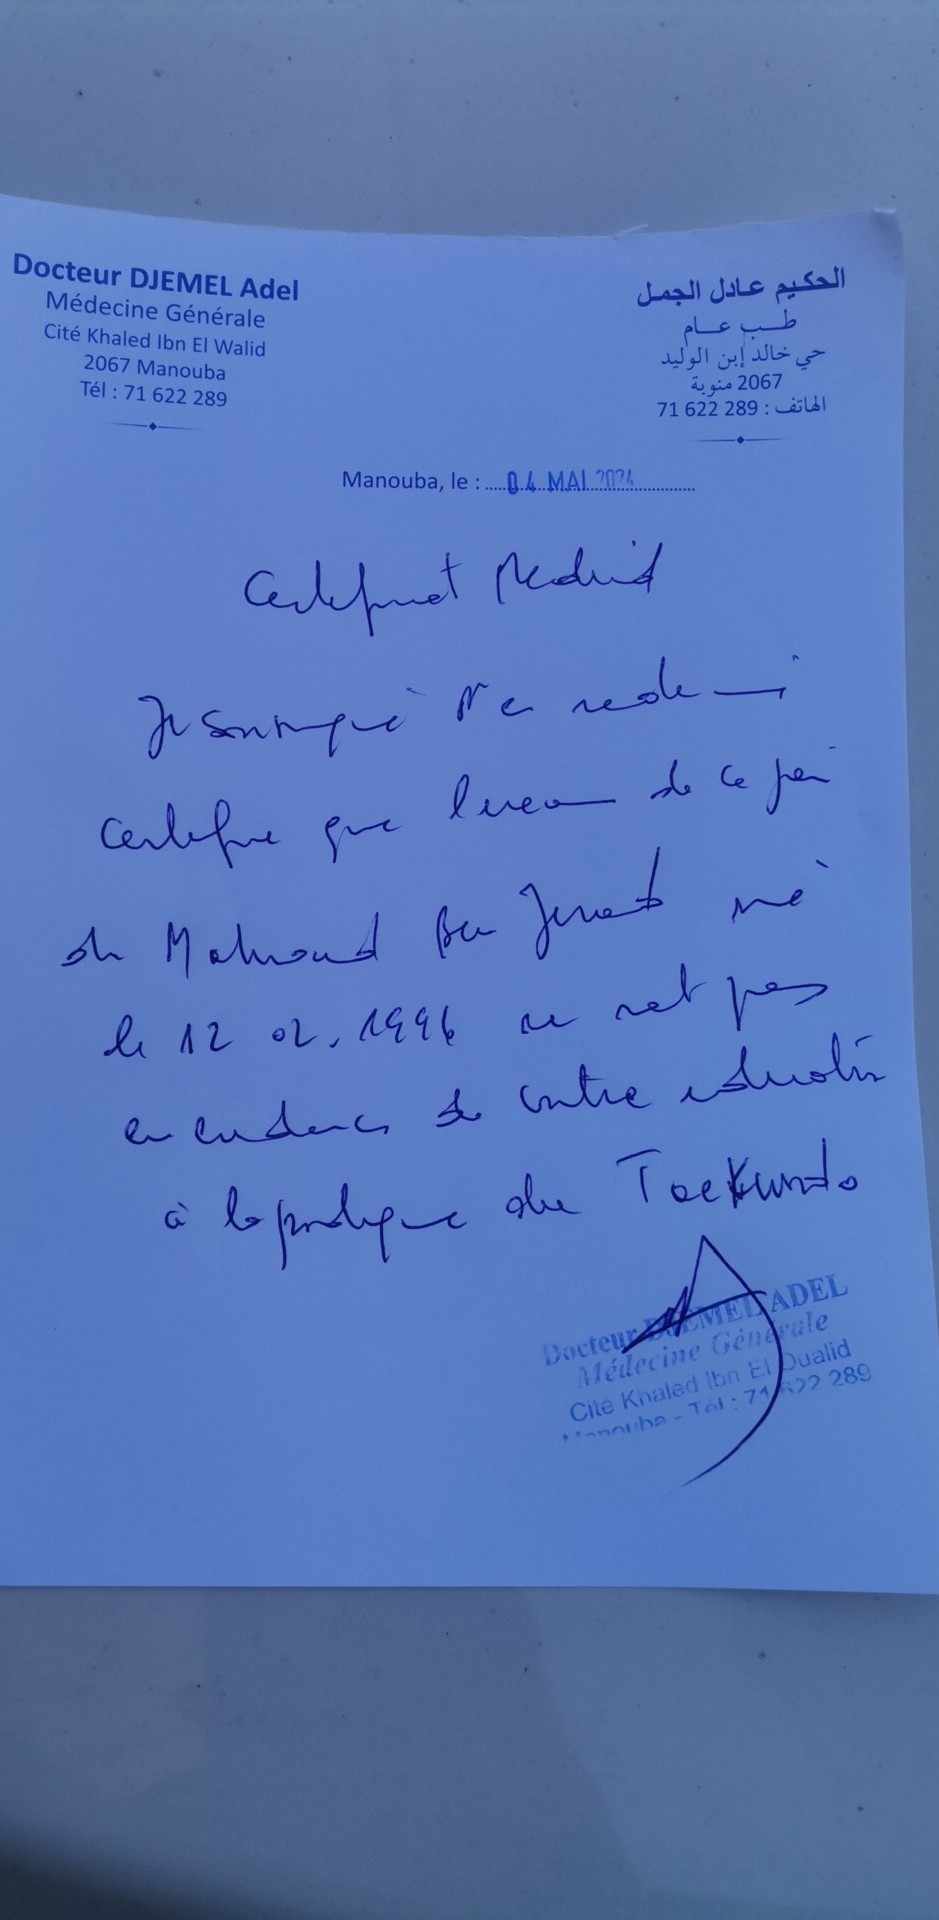 Docteur DJEMEL Adel
Médecine Générale
Cité Khaled Ibn El Walid
2067 Manouba
Tél : 71 622 289
الحكيم عادل الجمل
طب عام
حي خالد إبن الوليد
2067 منوبة
الهاتف : 289 622 71
Manouba, le : 04 MAI 2024
Certificat Medical
Je soussigné
Certifie que l'examen de ce jour
de Mahmoud Ben né
le 12 02.1996 ne met pas
en évidence de contre indication
à la pratique du Taekwondo
Docteur DJEMEL ADEL
Médecine Générale
Cité Khaled Ibn El Oualid
Manouba - Tél : 71 622 289